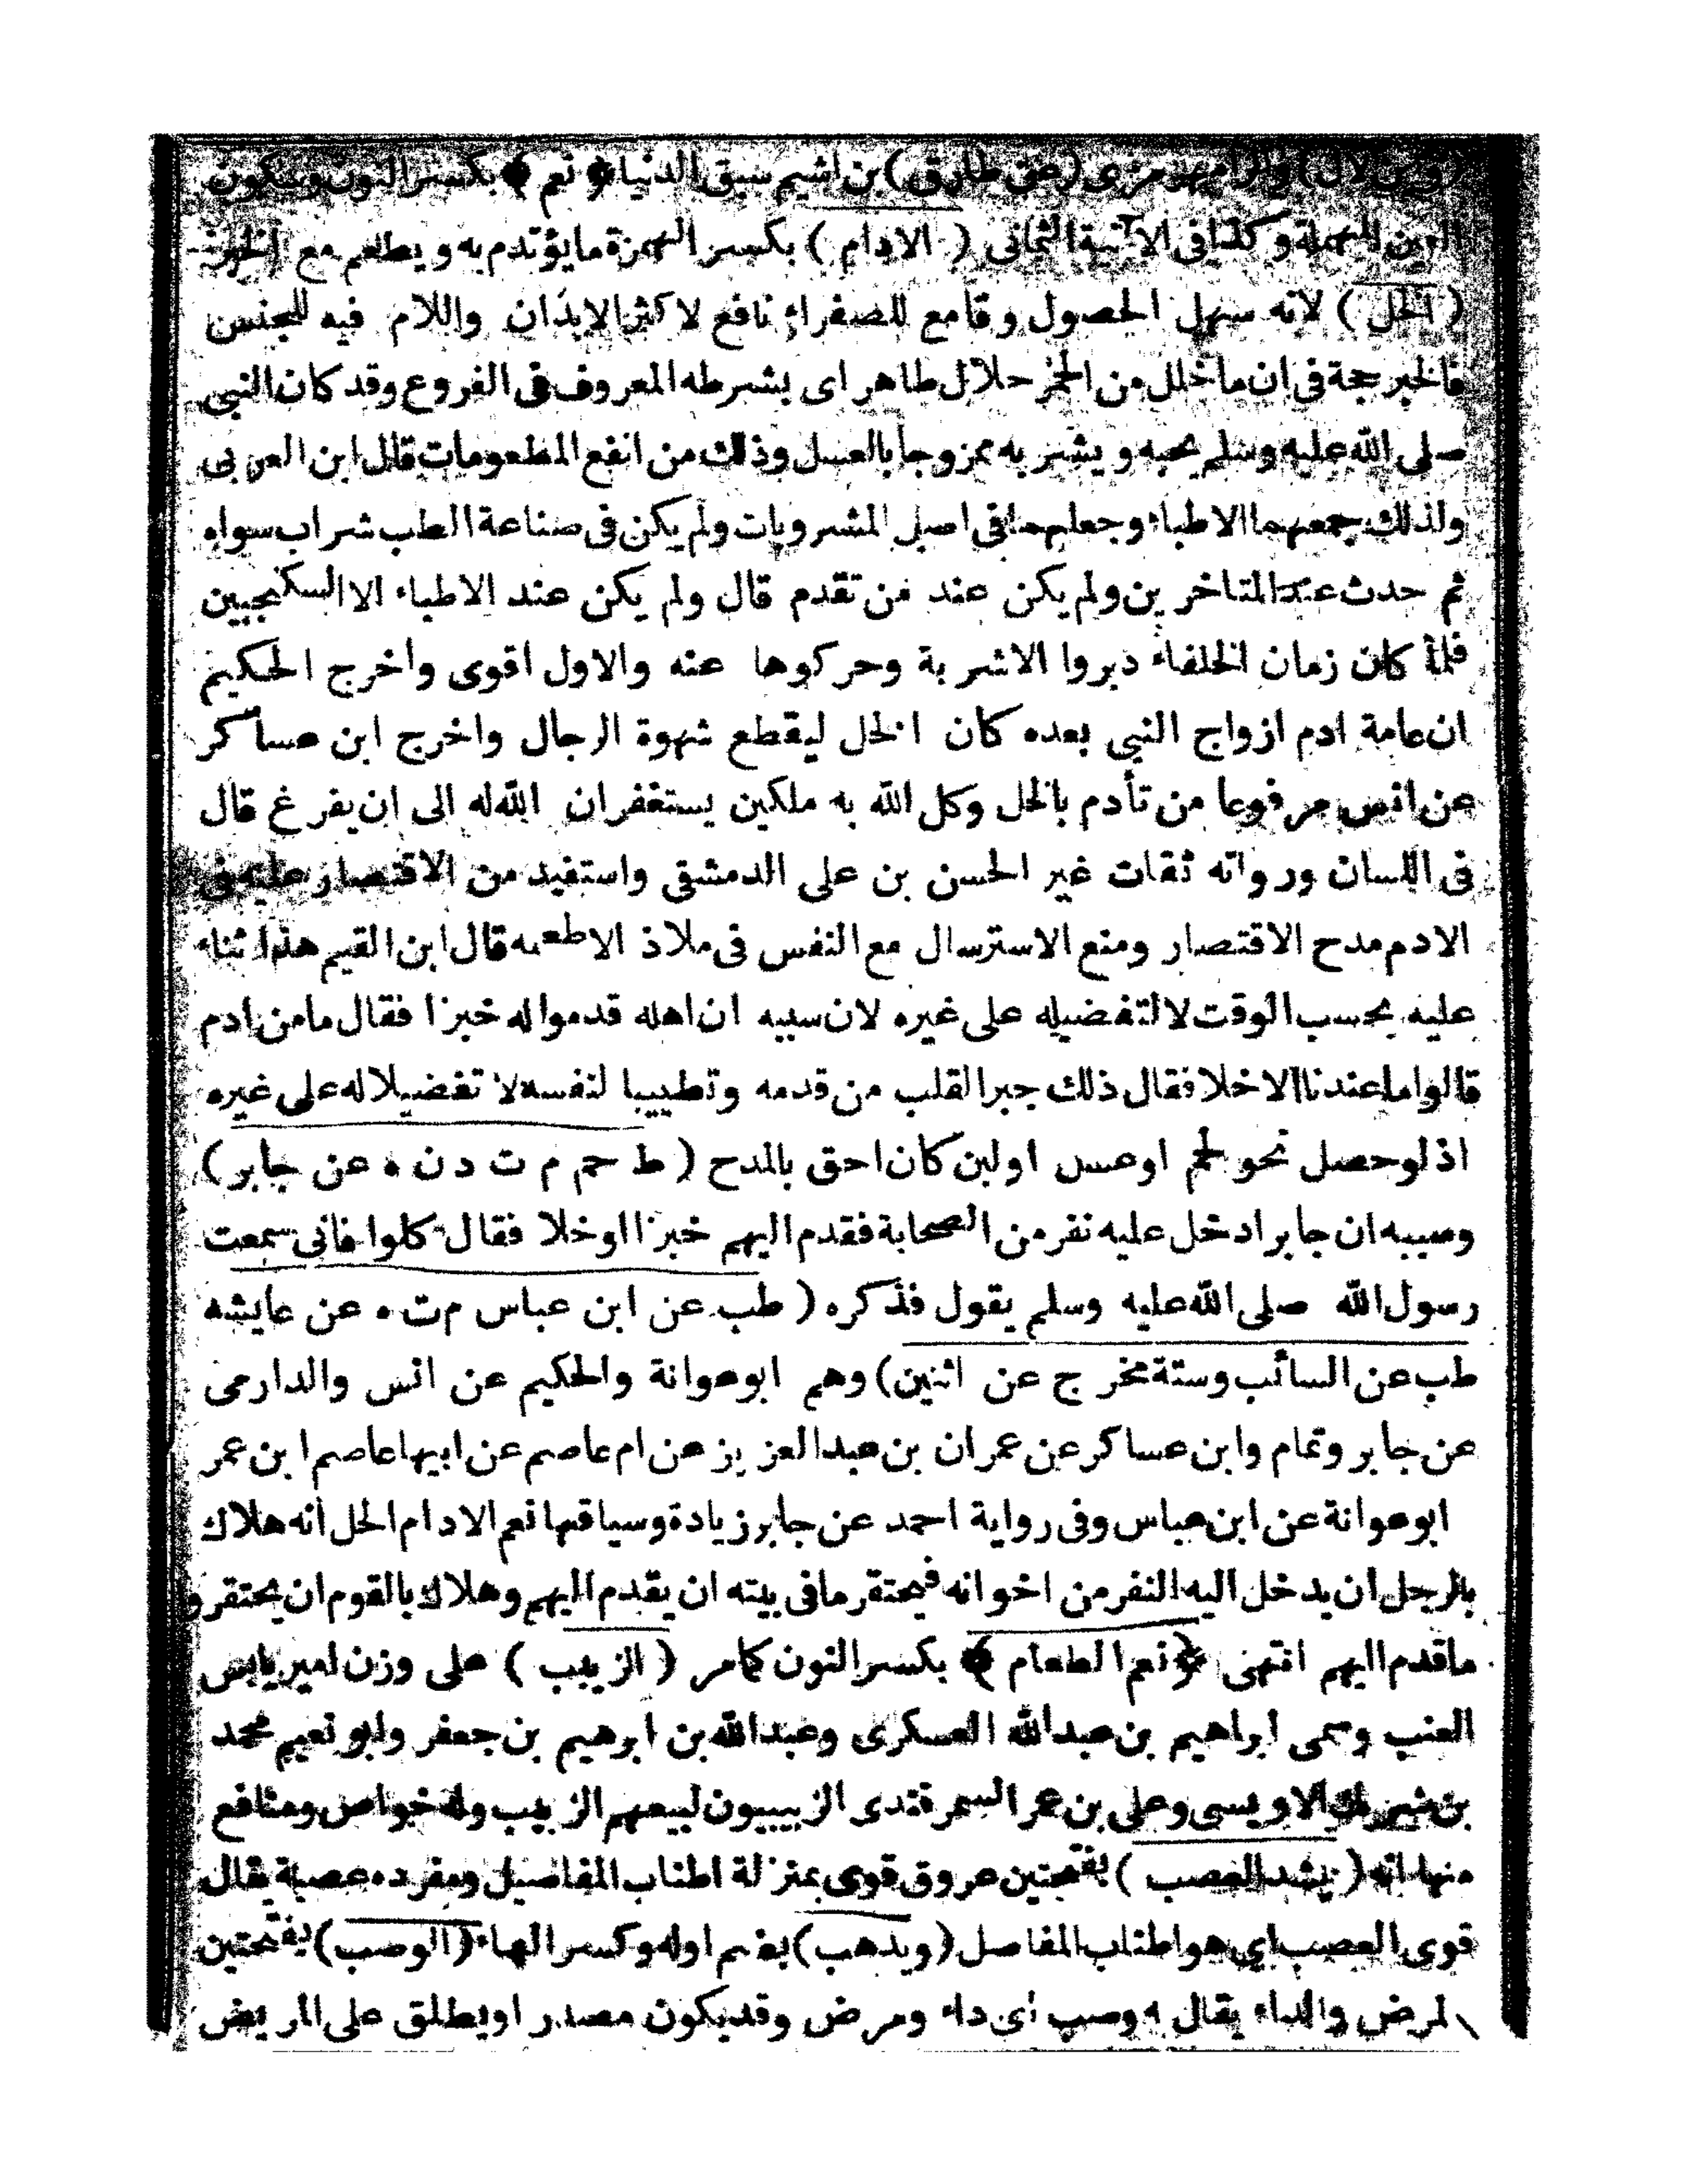 والرامهرمزى (عن طارق) بن اشيم سبق الدنيا ﴿ نعم ﴾ بكسر النون وسكون
العين المهملة وكذا فى الاتية الثمانى ( الادام ) بكسر الهمزة مايؤتدم به ويطعم مع الخبز
( الخل ) لانه سهل الحصول وقامع للصفراء نافع لاكثر الابدان واللام فيه للجنس
فالخبر حجة فى ان ماخلل من الخمر حلال طاهر اى بشرطه المعروف فى الفروع وقد كان النبى
صلى الله عليه وسلم يحبه ويشربه ممزوجا بالعسل وذلك من انفع المطعومات قال ابن العربى
ولذلك جمعهما الاطباء وجعلهما فى اصل المشروبات ولم يكن فى صناعة الطب شراب سواه
ثم حدث عند المتاخرين ولم يكن عند من تقدم قال ولم يكن عند الاطباء الا السكنجبين
فلما كان زمان الخلفاء دبروا الاشربة وحركوها عنه والاول اقوى واخرج الحكيم
ان عامة ادم ازواج النبى بعده كان الخل ليقطع شهوة الرجال واخرج ابن عساكر
عن انس مرفوعا من تأدم بالخل وكل الله به ملكين يستغفران الله له الى ان يفرغ قال
فى اللسان ورواته ثقات غير الحسن بن على الدمشقى واستفيد من الاقتصار عليه فى
الادم مدح الاقتصار ومنع الاسترسال مع النفس فى ملاذ الاطعمه قال ابن القيم هذا ثناء
عليه بحسب الوقت لا لتفضيله على غيره لان سببه ان اهله قدموا له خبزا فقال مامن ادم
قالوا ماعندنا الاخلا فقال ذلك جبرا لقلب من قدمه وتطييبا لنفسه لا تفضيلا له على غيره
اذ لوحصل نحو لحم اوعسل اولبن كان احق بالمدح ( ط حم م ت د ن ه عن جابر )
وسببه ان جابر ادخل عليه نفر من الصحابة فقدم اليهم خبزا اوخلا فقال كلوا فانى سمعت
رسول الله صلى الله عليه وسلم يقول فذكره ( طب عن ابن عباس م ت ه عن عايشه
طب عن السائب وستة مخرج عن اثنين ) وهم ابوعوانة والحكيم عن انس والدارمى
عن جابر وتمام وابن عساكر عن عمران بن عبد العزيز عن ام عاصم عن ابيها عاصم ابن عمر
ابوعوانة عن ابن عباس وفى رواية احمد عن جابر زيادة وسياقها نعم الادام الخل انه هلاك
بالرجل ان يدخل اليه النفر من اخوانه فيحتقر مافى بيته ان يقدم اليهم وهلاك بالقوم ان يحتقروا
ماقدم اليهم انتهى ﴿ نعم الطعام ﴾ بكسر النون كمامر ( الزبيب ) على وزن امير يابس
العنب وسمى ابراهيم بن عبدالله العسكرى وعبدالله بن ابرهيم بن جعفر وابو نعيم محمد
بن الاويسى وعلى بن عمر الزبيبيون لبيعهم الزبيب وله خواص ومنافع
منها انه ( يشد العصب ) بفتحتين عروق قوى بمنزلة اطناب المفاصيل ومفرده عصبة يقال
قوى العصب اى هو اطناب المفاصل ( ويذهب ) بضم اوله وكسر الهاء ( الوصب ) بفتحتين
لمرض والداء يقال به وصب اى داء ومرض وقديكون مصدر اويطلق على المريض